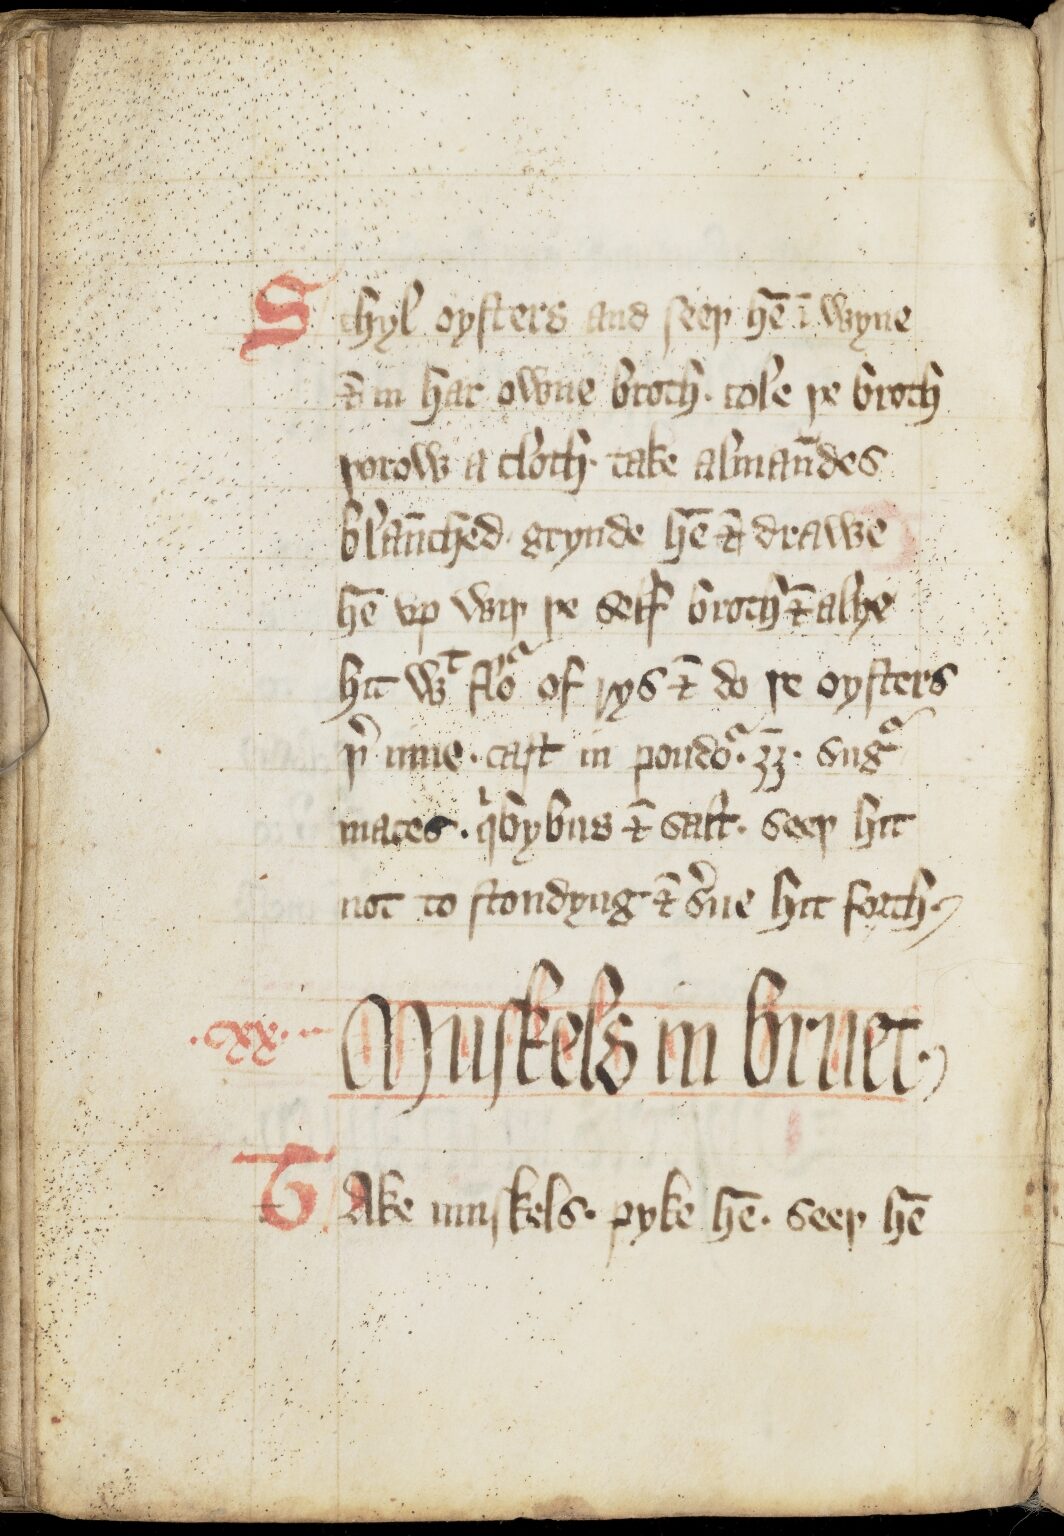 Schyl oysters and seeþ hē ī wyne
& in har owne broth. cole þe broth
þorow a cloth. take almaūdes
blaūched. grynde hē & drawe
hē vp wiþ þe self broth & alye
hit wᵗ floᵘ of rys & do þe oysters
þ̉ inne. cast in poudoᵘ. ʒʒ. sugᵘ
maces. qⁱbybus & salt. seeþ hit
not to stondyng & s̉ue hit forth.
.xx. Muskels in bruet.
TAke muskels. pyke hē. seeþ hē